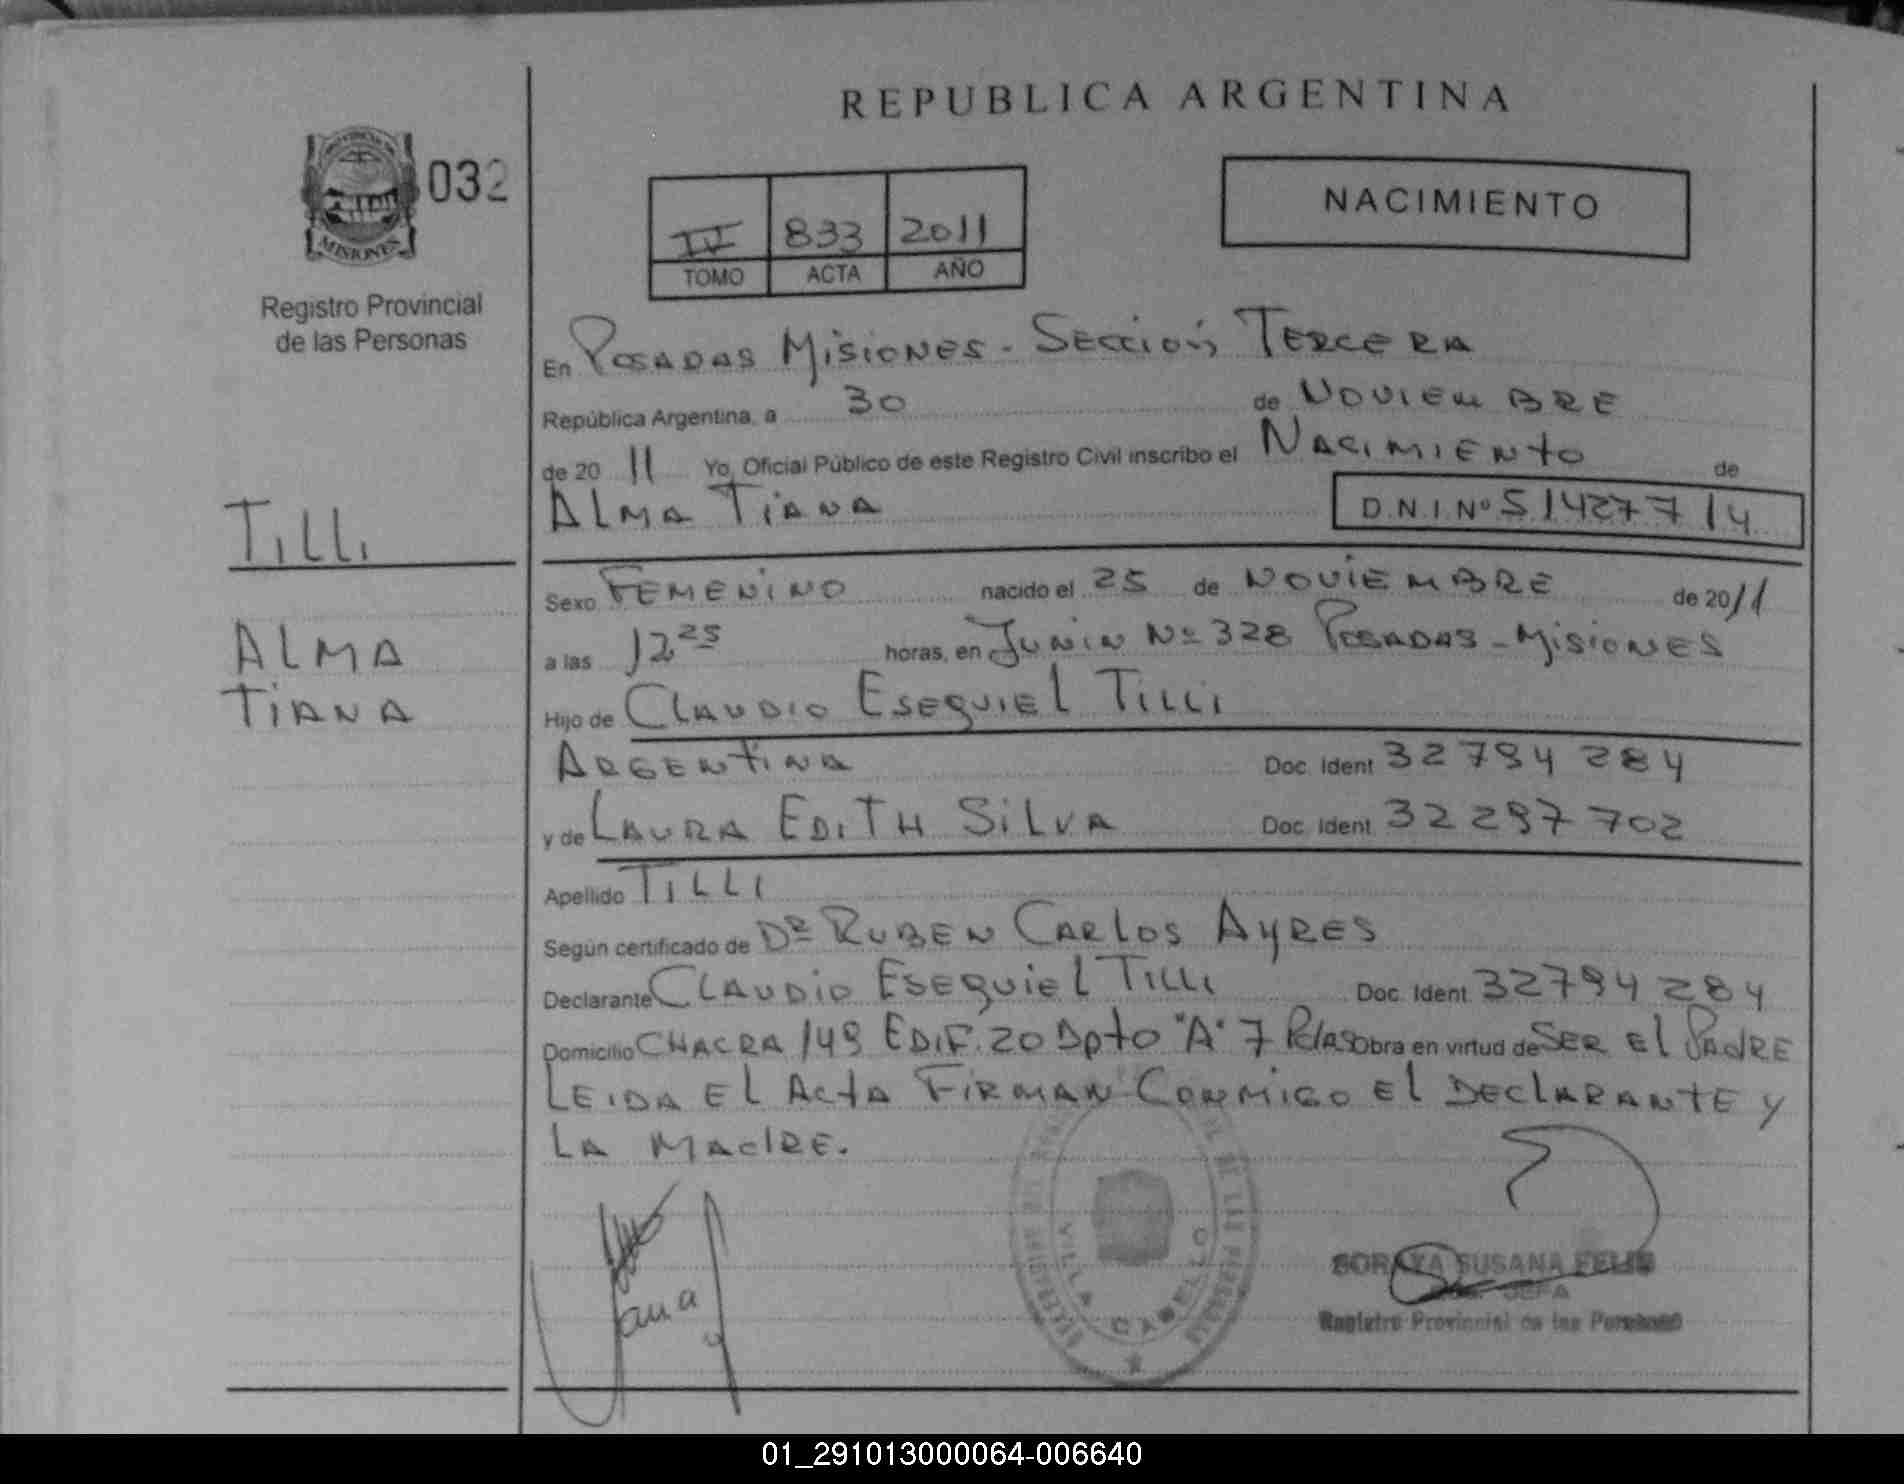 REPUBLICA ARGENTINA
PROVINCIA DE
MISIONES
032
Registro Provincial
de las Personas
IV 833 2011
TOMO ACTA AÑO
NACIMIENTO
En POSADAS MISIONES - SECCIÓN TERCERA
República Argentina, a 30 de NOVIEMBRE
de 2011 Yo, Oficial Público de este Registro Civil inscribo el NACIMIENTO de
ALMA TIANA D.N.I.Nº 51427714
TILLI
ALMA
TIANA
Sexo FEMENINO nacido el 25 de NOVIEMBRE de 2011
a las 12 25 horas, en JUNIN Nº 328 POSADAS - MISIONES
Hijo de CLAUDIO ESEQUIEL TILLI
ARGENTINA Doc. Ident. 32 794 284
y de LAURA EDITH SILVA Doc. Ident. 32 297 702
Apellido TILLI
Según certificado de DR RUBEN CARLOS AYRES
Declarante CLAUDIO ESEQUIEL TILLI Doc. Ident. 32794 284
Domicilio CHACRA 149 EDIF. 20 Dpto "A" 7 Pdas obra en virtud de SER El PADRE
LEIDA EL ActA FIRMAN CONMIGO El DEClARANTE y
LA MAdRE.
VILLA CABELLO
SORAYA SUSANA FELIS
JEFA
Registro Provincial de las Personas
01_291013000064-006640